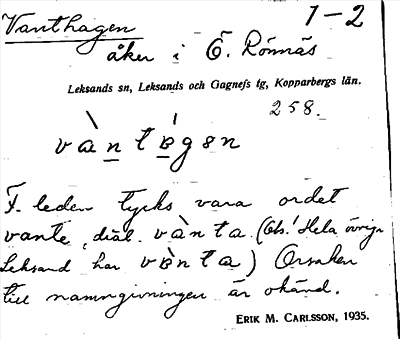 Vanthagen 1-2
åker i Ö. Rönnäs
Leksands sn, Leksands och Gagnefs tg, Kopparbergs län.
258.
vàntagen
F. leden tycks vara ordet
vante, dial. vànta. (Obs! Hela övriga
Leksand har vànta) Orsaken
till namngivningen är okänd.
ERIK M. CARLSSON, 1935.